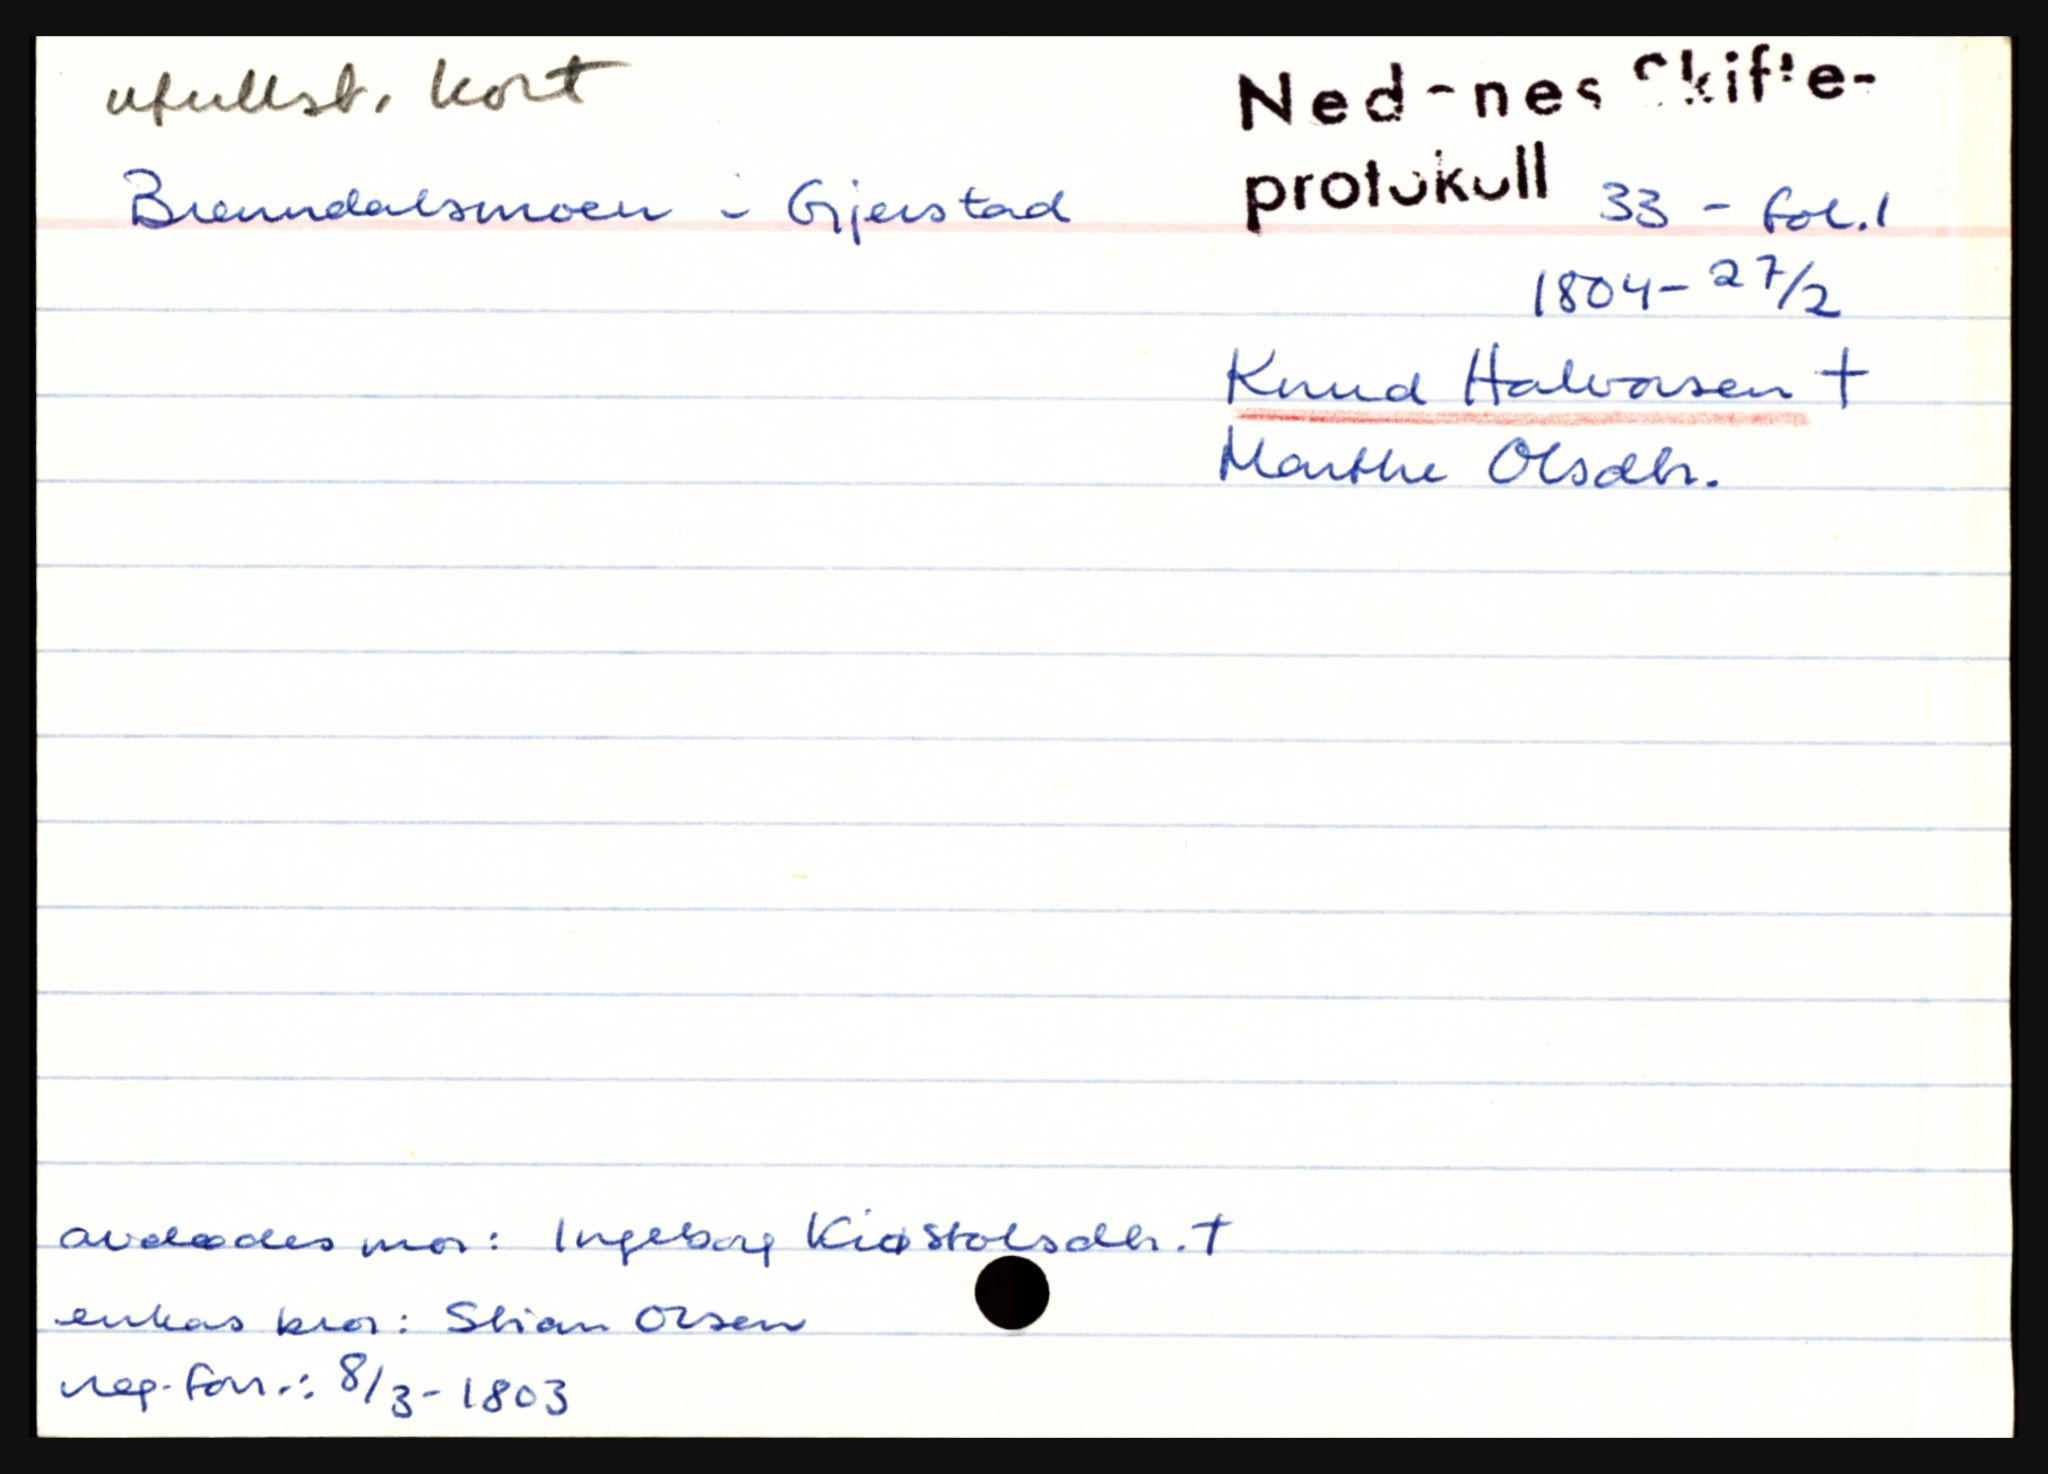 ufullst. kort
Nedenes Skifte-
protokoll 33 - fol. 1
Brenndalsmoen i Gjerstad
1804 - 27/2
Knud Halvorsen †
Marthe Olsdtr.
avdødes mor: Ingeborg Kiøstolsdtr. †
enkas bror: Stian Olsen
reg. forr.: 8/3 - 1803